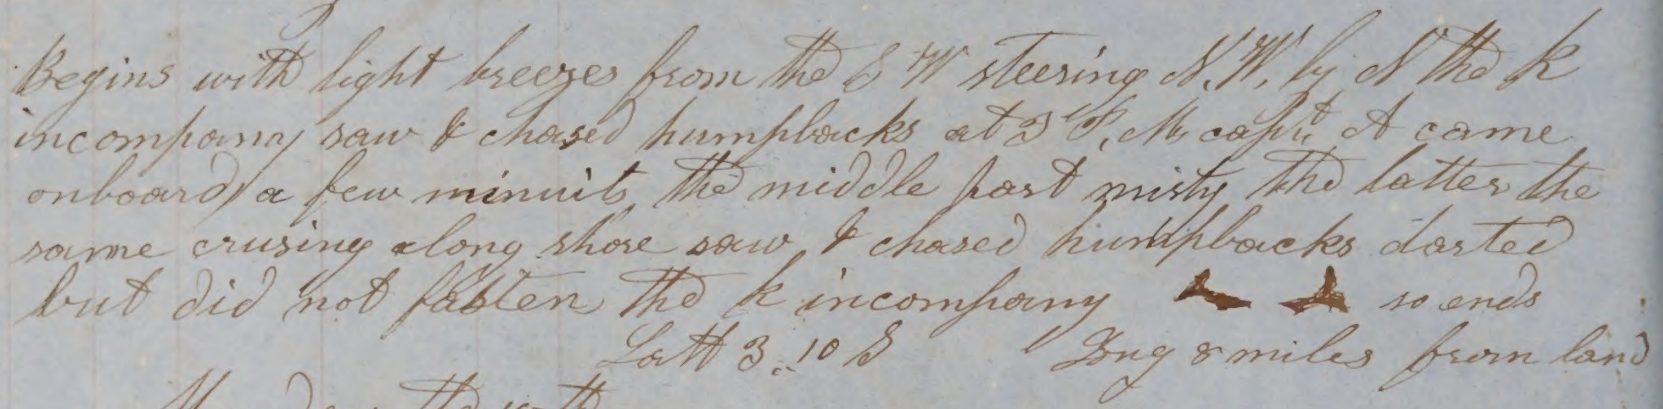 Begins with light breezes from the S W steering N. W. by N the K
incompany saw & chased humpbacks at 3 P. M. capt A came
onboard a few minuits the middle part misty the latter the
same crusing along shore saw & chased humpbacks darted
but did not fasten the K incompany so ends
Latt 3.. 10 S Long 8 miles from land